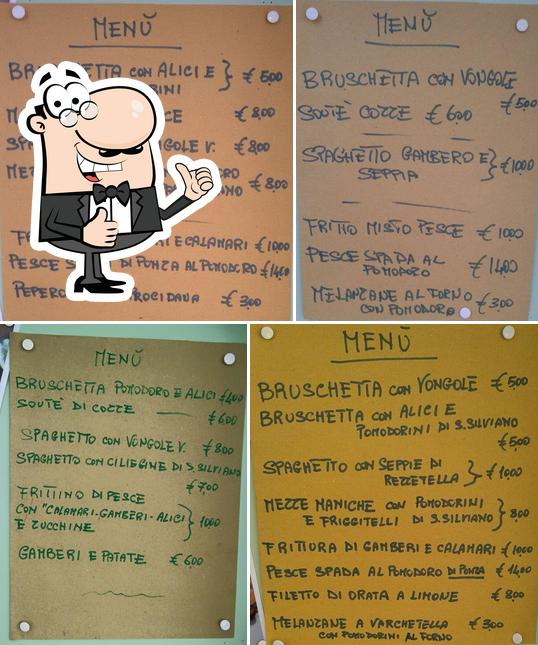 MENŬ
BRUSCHETTA CON ALICI E € 5,00
€ 8,00
€ 8,00
€ 8,00
E CALAMARI € 10,00
PESCE DI PONZA AL POMODORO € 14,00
€ 3,00
MENŬ
BRUSCHETTA CON VONGOLE
€ 5,00
SOUTÈ COZZE € 6,00
SPAGHETTO GAMBERO E € 10,00
SEPPIA
FRITTO MISTO PESCE € 10,00
PESCE SPADA AL € 14,00
POMODORO
MELANZANE AL FORNO € 3,00
CON POMODORO
MENŬ
BRUSCHETTA POMODORO E ALICI € 4,00
SOUTÈ DI COZZE € 6,00
SPAGHETTO CON VONGOLE V. € 8,00
SPAGHETTO CON CILIEGINE DI S. SILVIANO
€ 7,00
FRITTINO DI PESCE
CON "CALAMARI-GAMBERI-ALICI 10,00
E ZUCCHINE
GAMBERI E PATATE € 6,00
MENŬ
BRUSCHETTA CON VONGOLE € 5,00
BRUSCHETTA CON ALICI E
POMODORINI DI S. SILVIANO
€ 5,00
SPAGHETTO CON SEPPIE DI € 10,00
REZZETELLA
MEZZE MANICHE CON POMODORINI 8,00
E FRIGGITELLI DI S. SILVIANO
FRITTURA DI GAMBERI E CALAMARI € 10,00
PESCE SPADA AL POMODORO DI PONZA € 14,00
FILETTO DI ORATA A LIMONE € 8,00
MELANZANE A VARCHETELLA € 3,00
CON POMODORINI AL FORNO